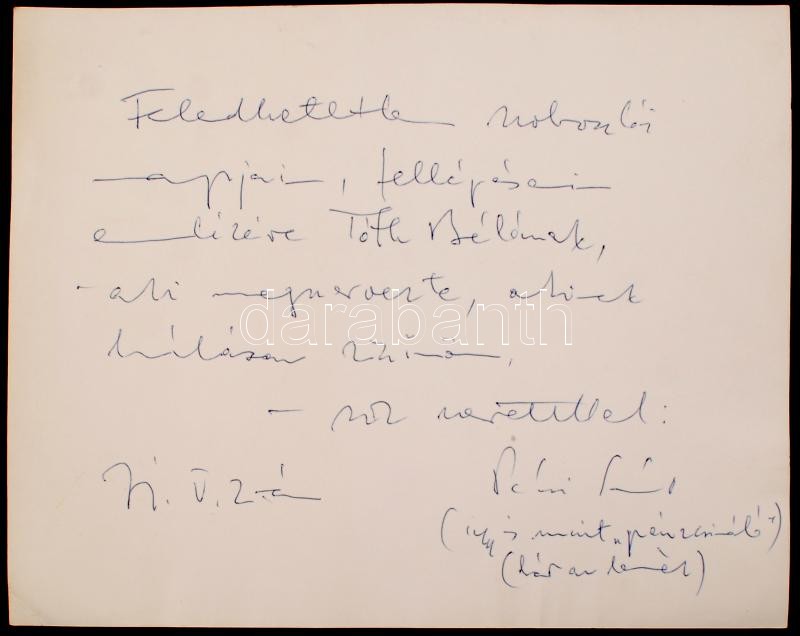 Feledhetetlen szoboszlói
napjaim, fellépéseim
emlékére Tóth Bélának,
aki megszervezte, akinek
hálásan köszönöm,
– sok szeretettel:
V. 2-án
(így is mint „pénzcsináló”)
darabanth